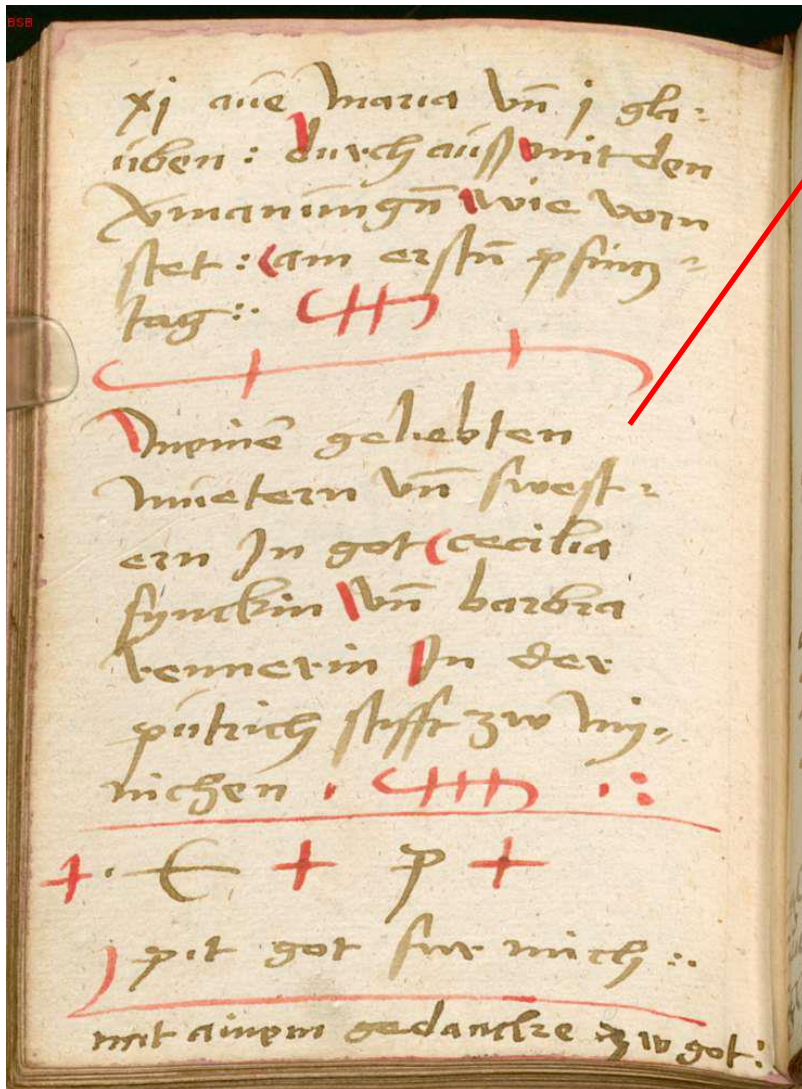 BSB
xj aūe maria vn̄ j gla-
uben : durch auß mit den
Vmanūngn̄ wie vorn
stet : am erstn̄ pfincz-
tag :.
meinē geliebten
mūetern vn̄ swest-
ern In got cecilia
synckin vn̄ barbra
rennerin In der
pūtrich stifft zw my-
nichen .
+ . E + p +
pit got fur mich :.
mit ainem gedanckze zw got :